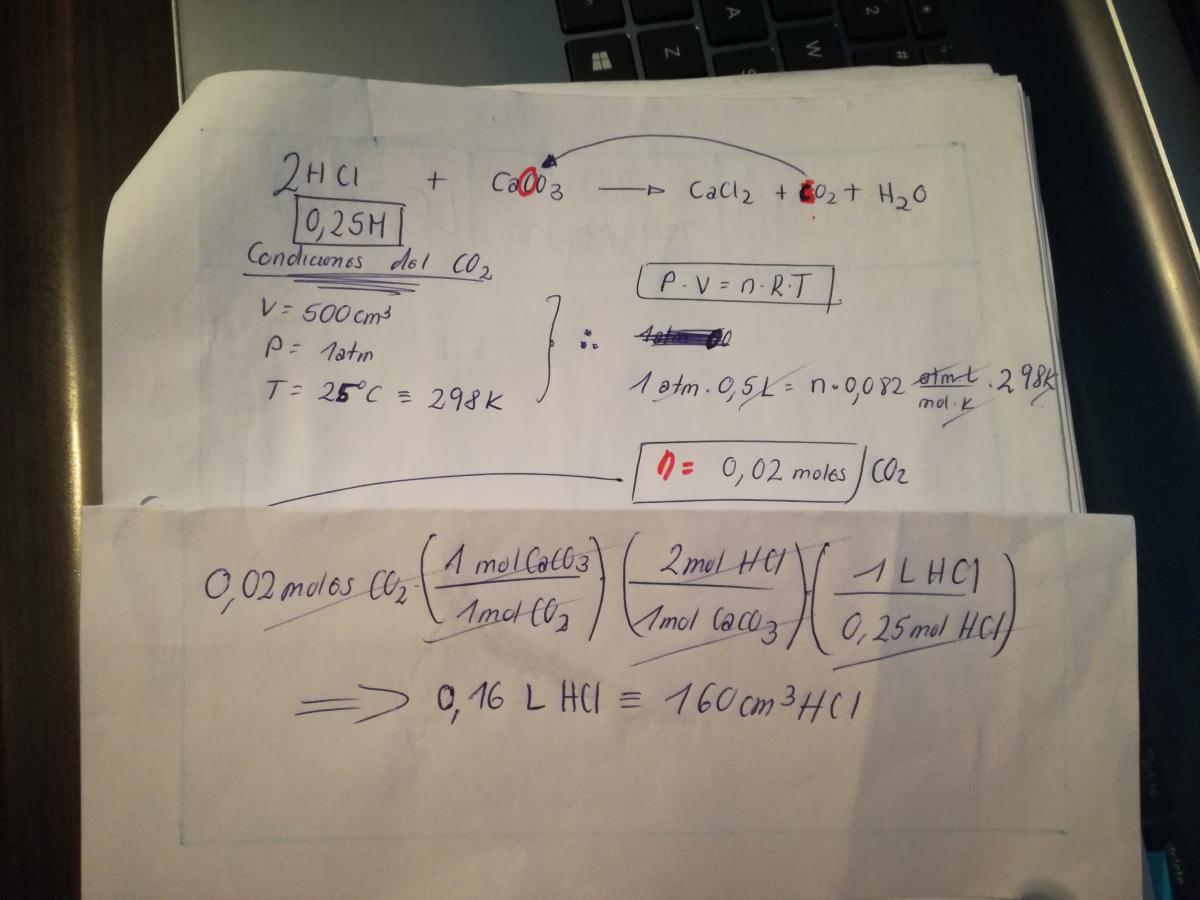 2HCl + CaCO3 → CaCl2 + CO2 + H2O
0,25M
Condiciones del CO2
V = 500 cm³
P = 1atm
T = 25°C ≡ 298K
∴
P · V = n · R · T
1 atm · 0,5L = n · 0,082 atm·L/mol·K · 298K
n = 0,02 moles CO2
0,02 moles CO2 · (1 mol CaCO3/1 mol CO2) (2mol HCl/1mol CaCO3) · (1 L HCl/0,25 mol HCl)
⇒ 0,16 L HCl ≡ 160 cm³ HCl
A
2
*
Z
W
#
delete